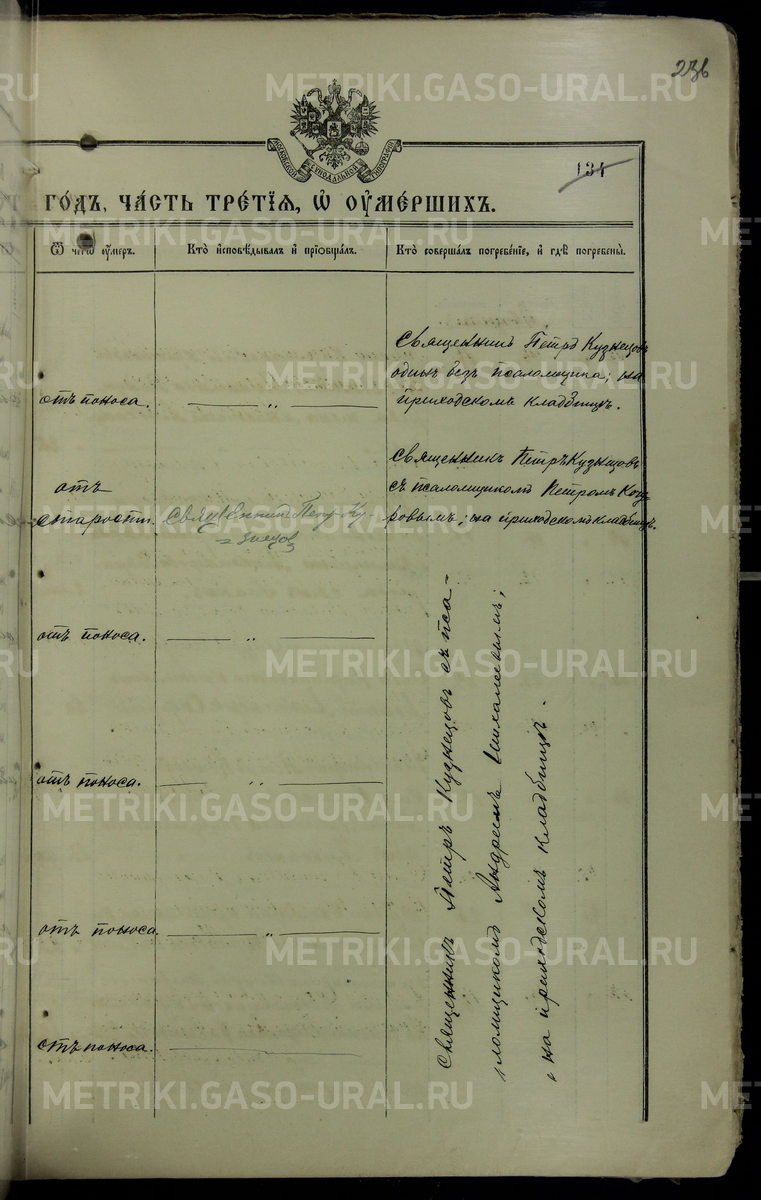 236
МОСКОВСКОЙ СѴНОДАЛЬНОЙ ТИПОГРАФІИ
134
ГОДЪ, ЧАСТЬ ТРЕТІЯ, Ѡ ОУМЕРШИХЪ.
Ѿ чегѡ оумеръ.
Кто исповѣдывалъ и пріобщалъ.
Кто совершалъ погребеніе, и гдѣ погребены.
отъ поноса.
— „ —
Священникъ Петръ Кузнецовъ
одинъ безъ псаломщика; на
приходскомъ кладбищѣ.
отъ
старости.
Священникъ Петръ Ку-
знецов
Священникъ Петръ Кузнецовъ
съ псаломщикомъ Петромъ
ровымъ; на приходскомъ кладбищѣ.
отъ поноса.
— „ —
отъ поноса.
— „ —
отъ поноса.
— „ —
отъ поноса.
Священникъ Петръ Кузнецовъ съ пса-
ломщикомъ Андреемъ
на приходскомъ кладбищѣ.
METRIKI.GASO-URAL.RU